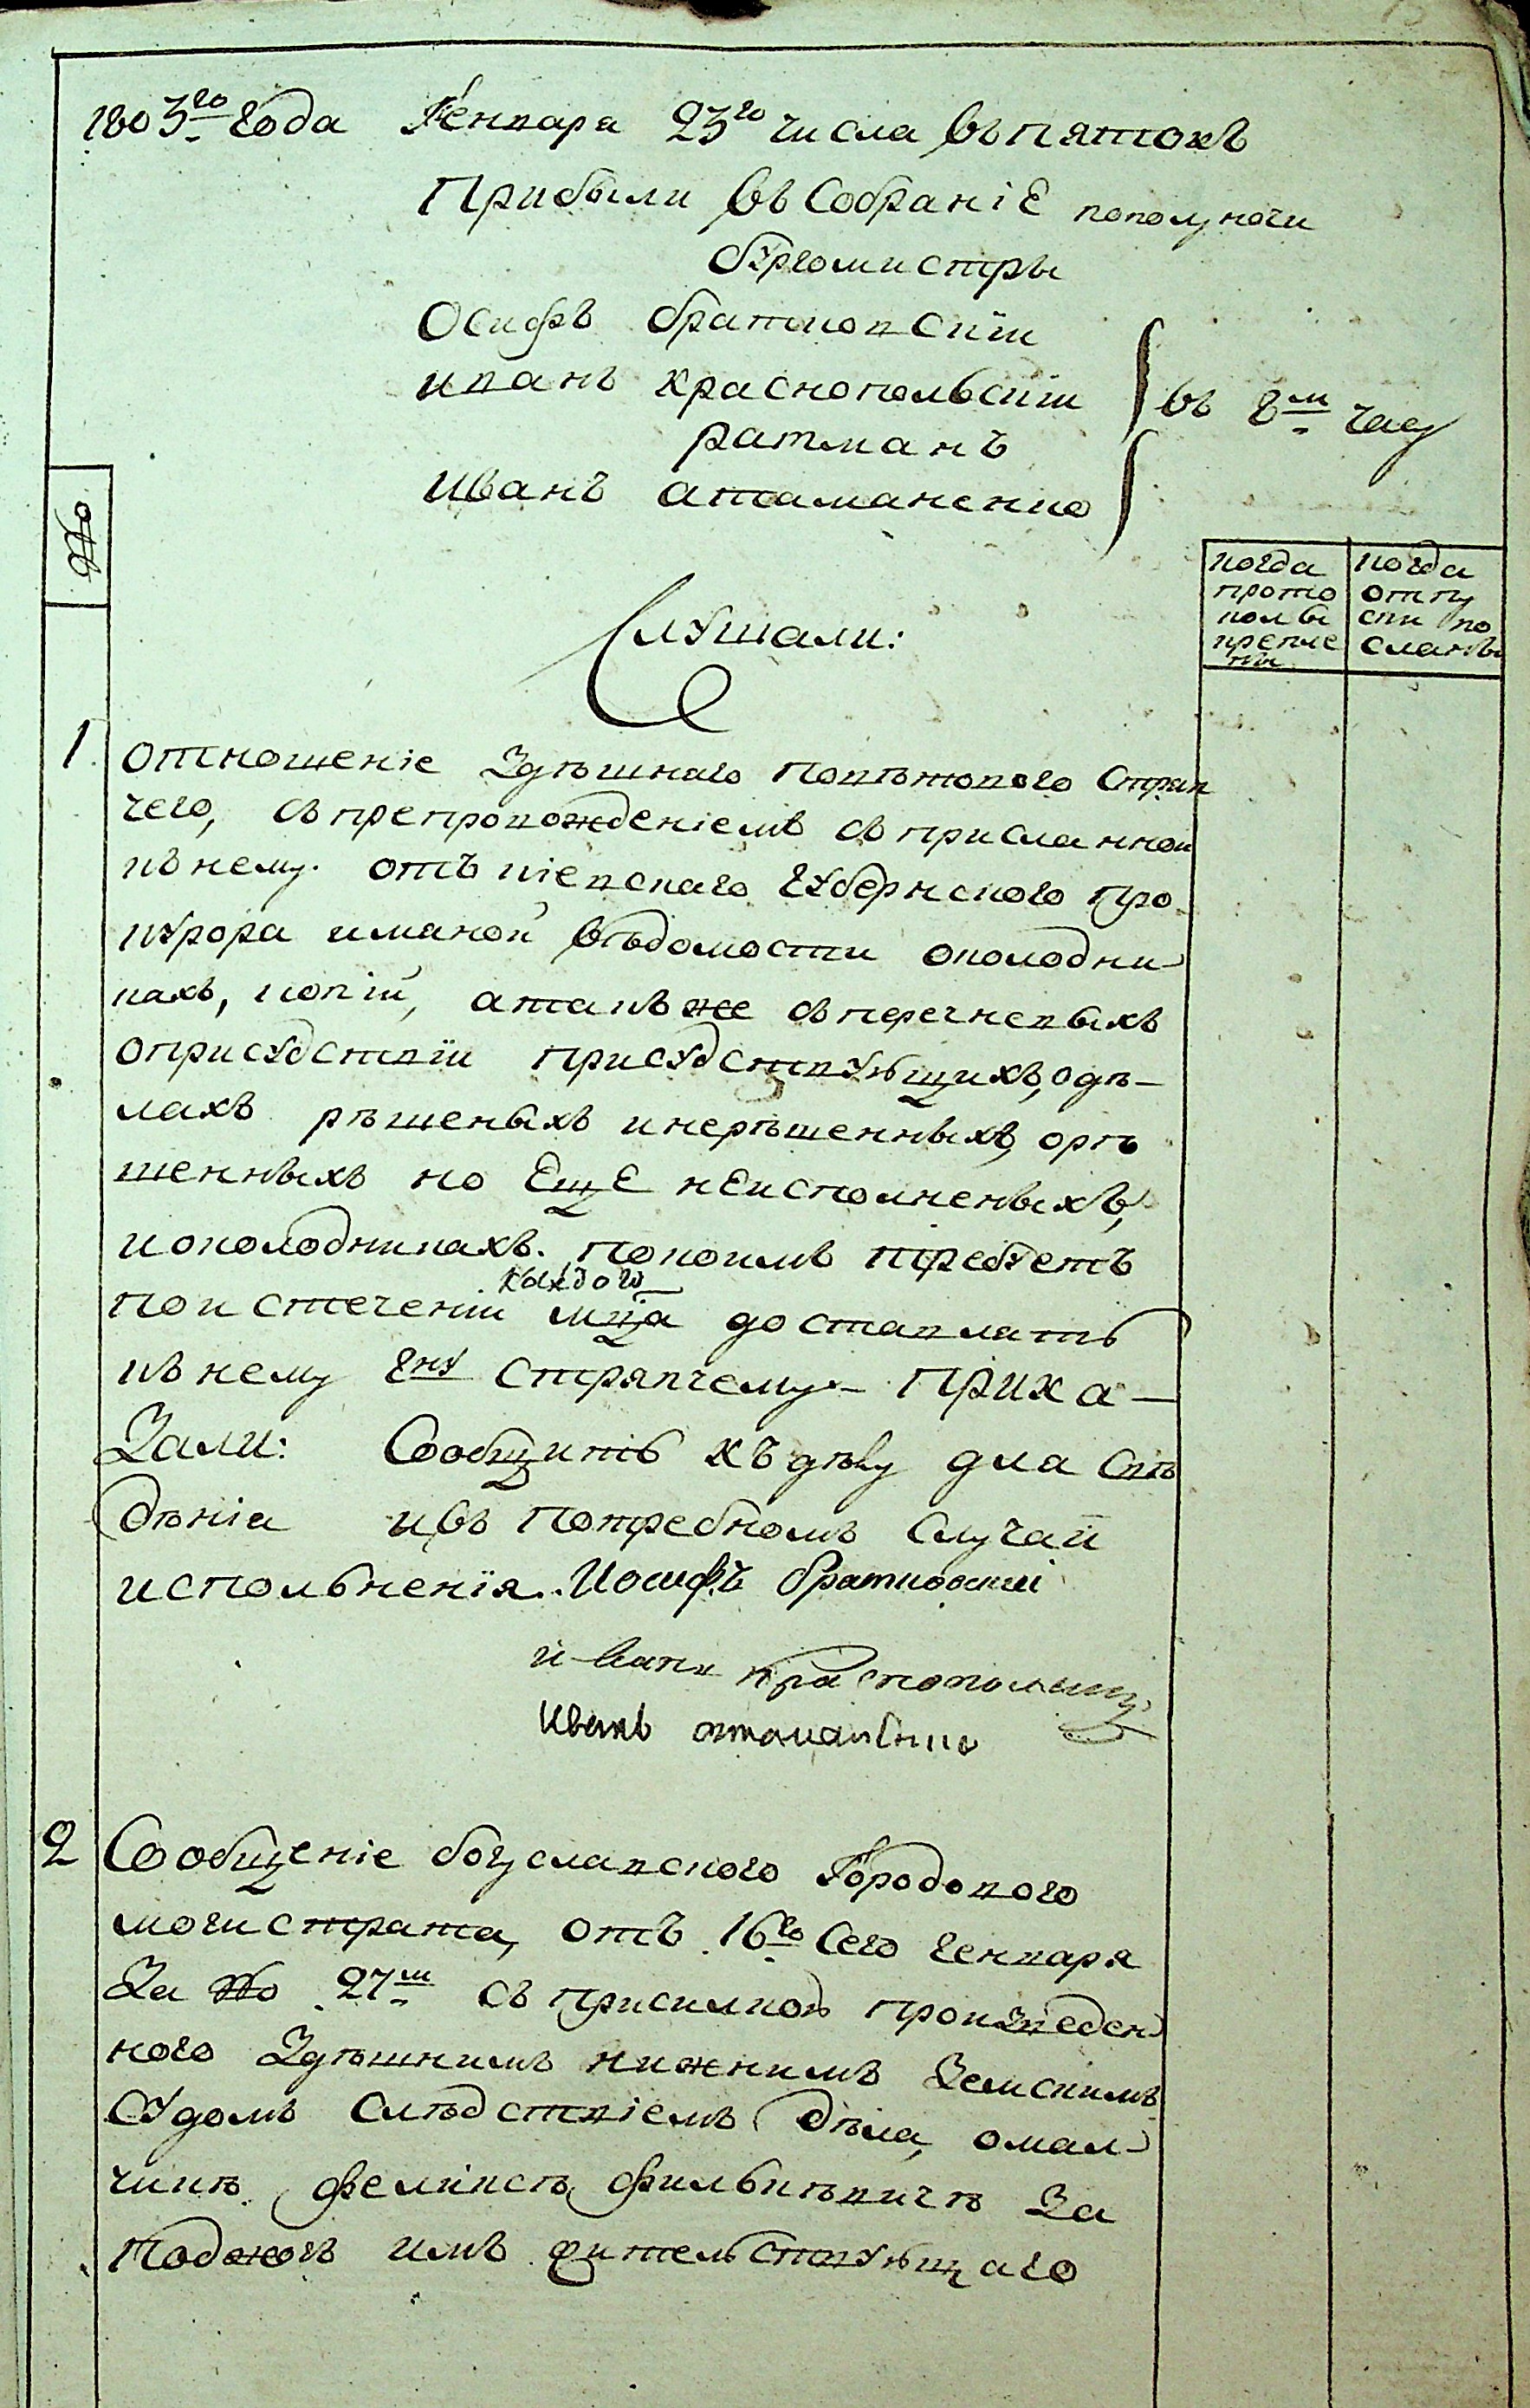 1803го года Генваря 23го числа въ пятокъ
Прибыли въ собраніе пополуночи
бургомистры
Осифъ братковскій
иванъ краснопольскій
ратманъ
Иванъ атаманенко
въ 8м часу
№
когда
прото
колы
крепле
ны
когда
отпу
ски по
сланы
Слушали:
1. отношеніе здѣшнаго повѣтового стряп
чего, съ препровожденіемъ съ присланной
къ нему отъ кіевскаго губернского про
курора иманой вѣдомости околодни
кахъ, копій, атакъже съ перечневыхъ
оприсудствіи присудствующихъ, одѣ-
лахъ рѣшеныхъ инерѣшенныхъ, орѣ
шенныхъ но еще неисполненыхъ,
иоколодникахъ. покоимъ требуетъ
каждого
поистеченіи мца доставлять
къ нему гну стряпчему - прика-
зали: Сообщить къ дѣлу для свѣ
дѣнія ивъ потребномъ случаи
испольненія. Иосифъ братковскій
иванъ краснопольскій
Иванъ атаманенко
2 Сообщеніе богуславского городового
магистрата, отъ 16го сего генваря
за № 27м съ присилкою произведен
ного здѣшнимъ нижнимъ земскимъ
судомъ слѣдствіемъ дѣла, омал-
чикѣ феликсѣ за
поджогъ имъ жительствующаго